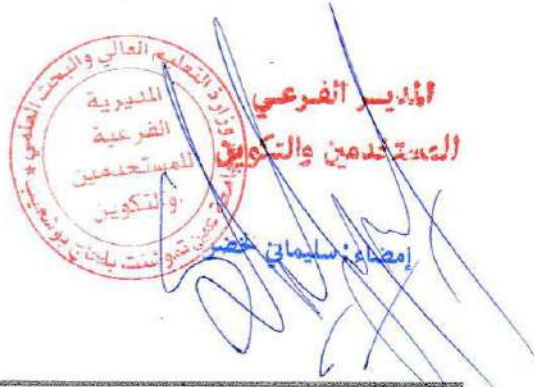 وزارة التعليم العالي والبحث العلمي
المديرية
الفرعية
للمستخدمين
والتكوين
جامعة عين تموشنت بلحاج بوشعيب
المدير الفرعي
للمستخدمين والتكوين
إمضاء: سليماني لخضر